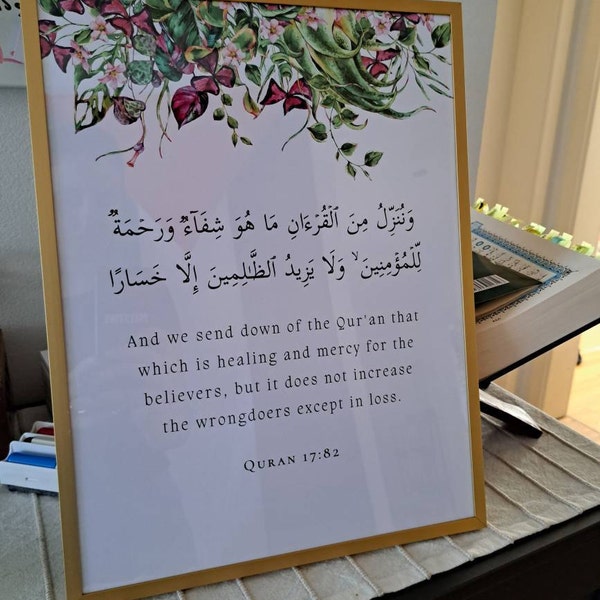 وَنُنَزِّلُ مِنَ ٱلْقُرْءَانِ مَا هُوَ شِفَآءٌ وَرَحْمَةٌ
لِّلْمُؤْمِنِينَ ۙ وَلَا يَزِيدُ ٱلظَّـٰلِمِينَ إِلَّا خَسَارًا
And we send down of the Qur'an that
which is healing and mercy for the
believers, but it does not increase
the wrongdoers except in loss.
Quran 17:82